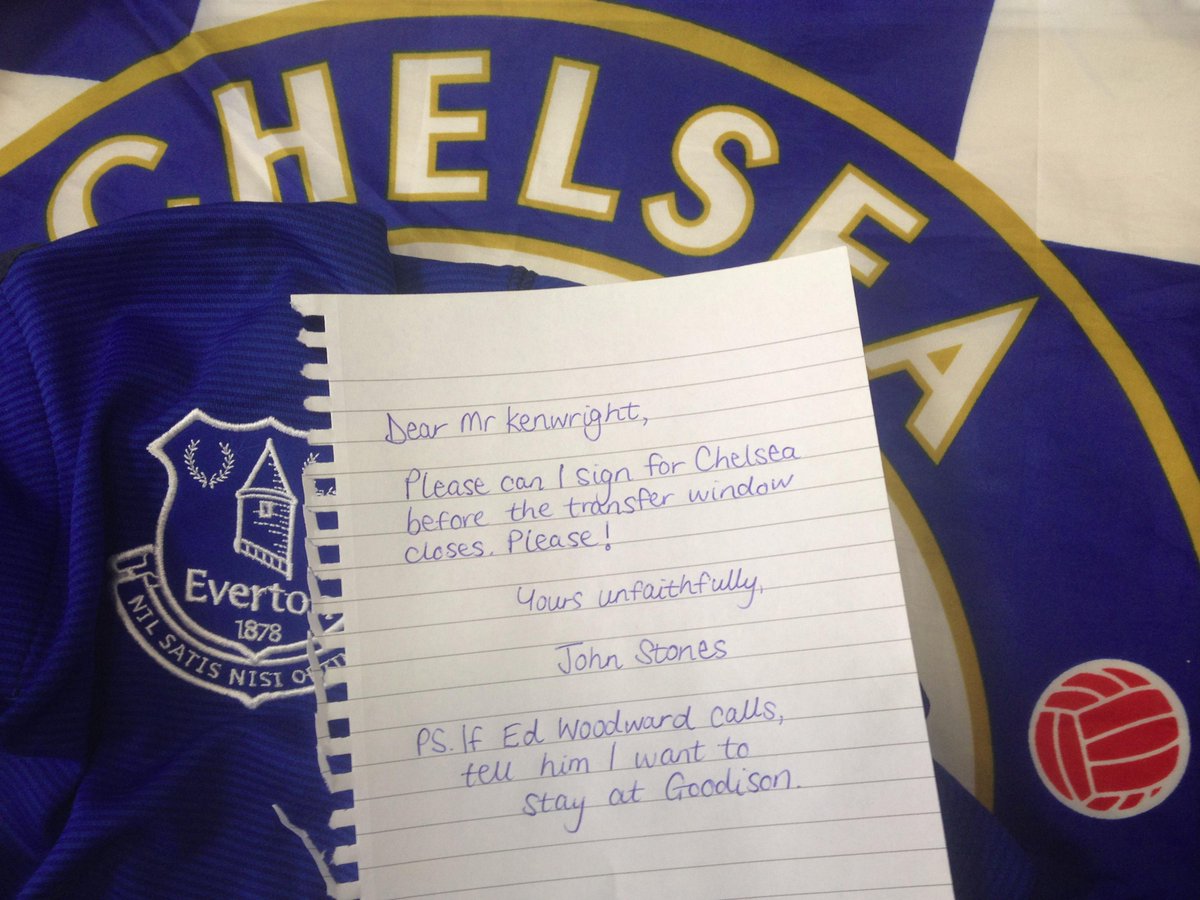 CHELSEA
Everto
1878
NIL SATIS NISI
Dear Mr Kenwright,
Please can I sign for Chelsea
before the transfer window
closes. Please!
Yours unfaithfully,
John Stones
PS. If Ed Woodward calls,
tell him I want to
stay at Goodison.